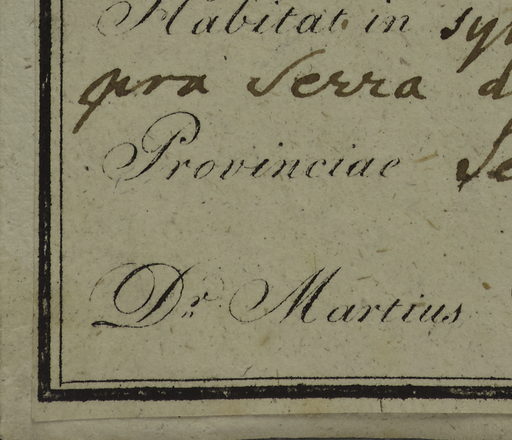 Habitat in
pra Serra
Provinciae
Dr. Martius